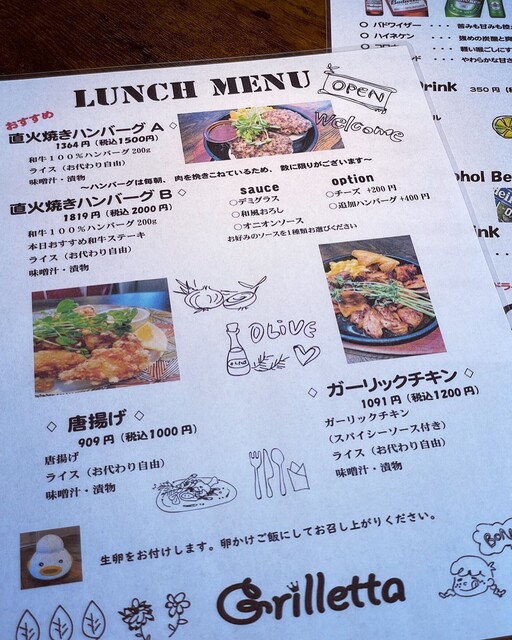 LUNCH MENU
OPEN
Welcome
おすすめ
直火焼きハンバーグ A ◇
1364円（税込1500円）
和牛100％ハンバーグ 200g
ライス（お代わり自由）
味噌汁・漬物
～ハンバーグは毎朝、肉を挽きこねているため、数に限りがございます～
直火焼きハンバーグ B ◇
1819円（税込2000円）
和牛100％ハンバーグ 200g
本日おすすめ和牛ステーキ
ライス（お代わり自由）
味噌汁・漬物
sauce
○デミグラス
○和風おろし
○オニオンソース
お好みのソースを1種類お選びください
option
○チーズ +200円
○追加ハンバーグ +400円
OLIVE
◇ 唐揚げ ◇
909円（税込1000円）
唐揚げ
ライス（お代わり自由）
味噌汁・漬物
◇ ガーリックチキン ◇
1091円（税込1200円）
ガーリックチキン
（スパイシーソース付き）
ライス（お代わり自由）
味噌汁・漬物
生卵をお付けします。卵かけご飯にしてお召し上がりください。
Grilletta
○ バドワイザー
○ ハイネケン
350円